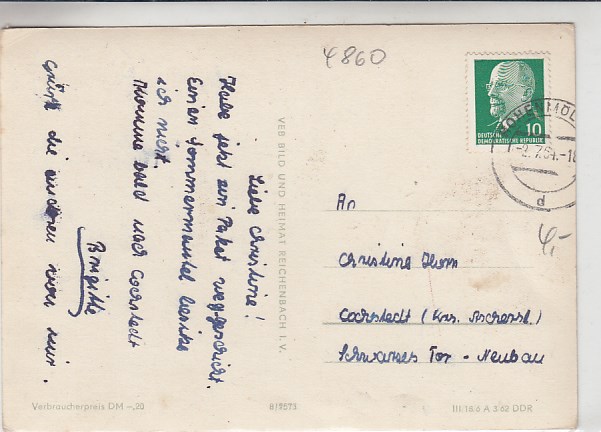 4860
Liebe Christine!
Habe jetzt ein Paket weggeschickt.
Einen Sommermantel besitze
ich nicht.
Komme bald nach Cochstedt
Grüße die anderen von mir.
Brigitte
VEB BILD UND HEIMAT REICHENBACH I. V.
DEUTSCHE
DEMOKRATISCHE REPUBLIK
10
HOHENMÖL
d
4,-
An
Christine Horn
Cochstedt (Krs. Aschersl.)
Schwarzes Tor - Neubau
Verbraucherpreis DM -,20
8/9573
III/18/6 A 3/62 DDR